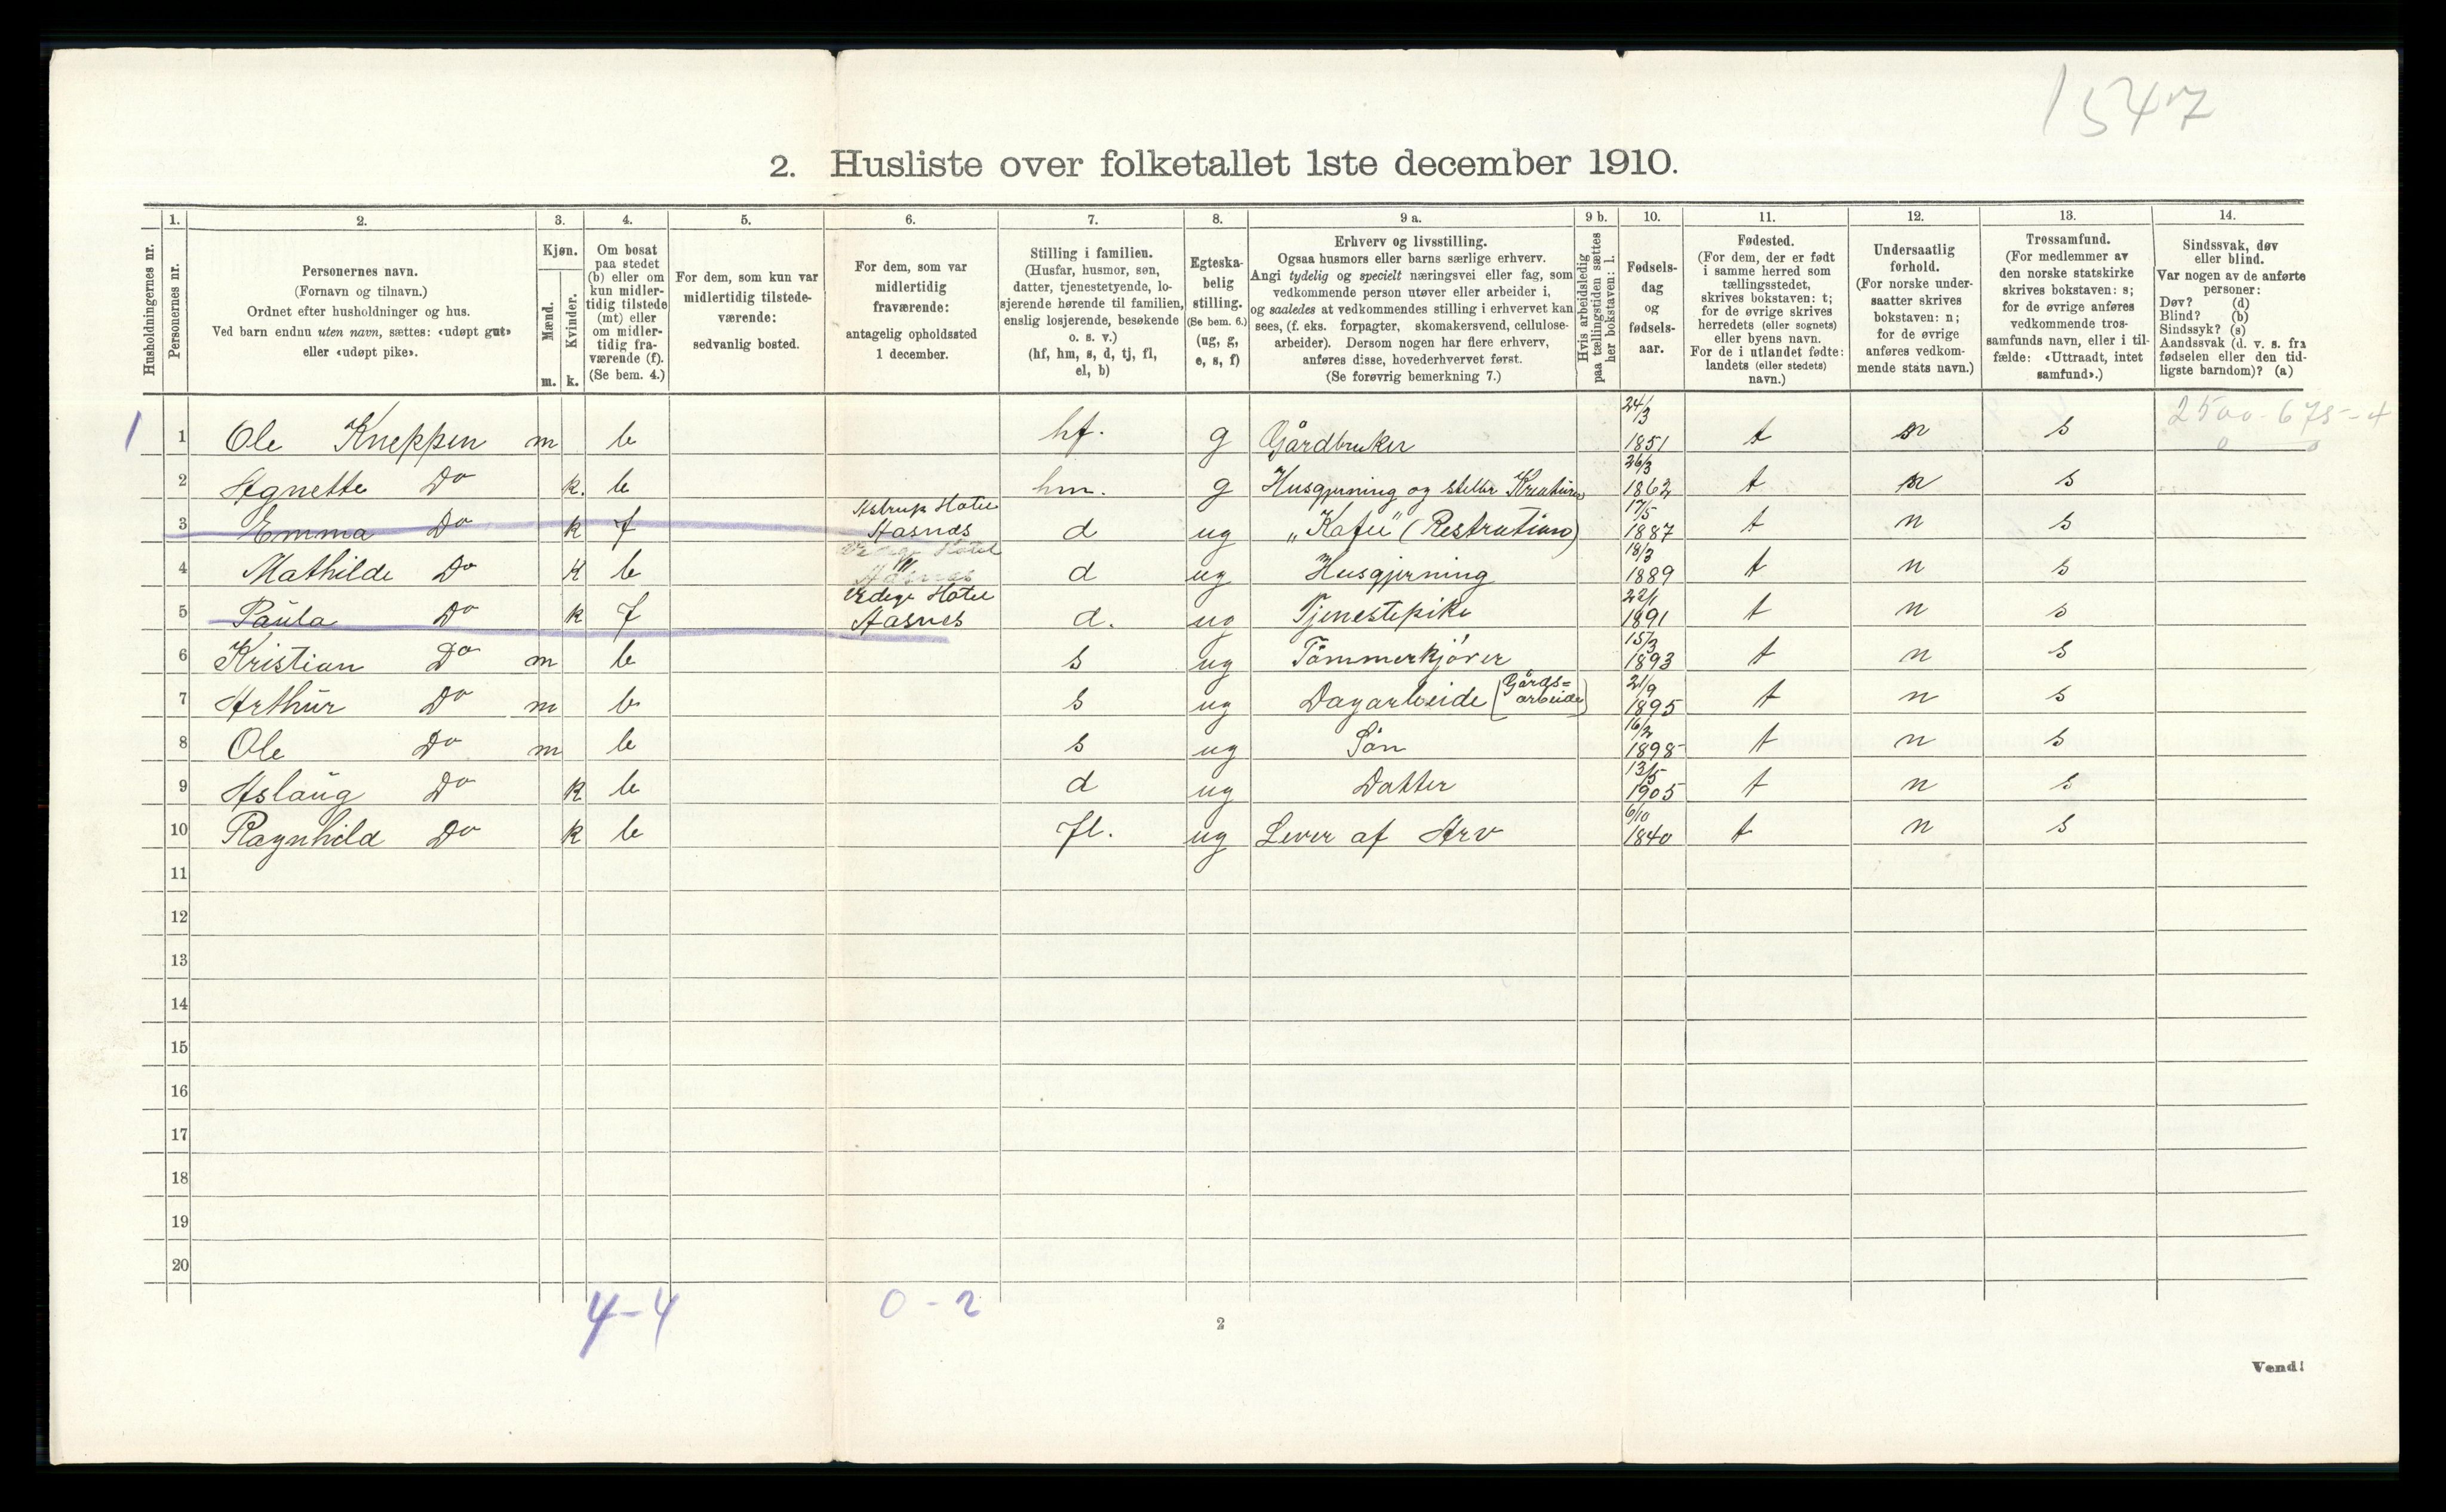 1547
2. Husliste over folketallet 1ste december 1910.
Husholdningernes nr.
1.
Personernes nr.
2.
Personernes navn.
(Fornavn og tilnavn.)
Ordnet efter husholdninger og hus.
Ved barn endnu uten navn, sættes: «udøpt gut»
eller «udøpt pike».
3.
Kjøn.
Mænd.
Kvinder.
m. k.
4.
Om bosat
paa stedet
(b) eller om
kun midler-
tidig tilstede
(mt) eller
om midler-
tidig fra-
værende (f).
(Se bem. 4.)
5.
For dem, som kun var
midlertidig tilstede-
værende:
sedvanlig bosted.
6.
For dem, som var
midlertidig
fraværende:
antagelig opholdssted
1 december.
7.
Stilling i familien.
(Husfar, husmor, søn,
datter, tjenestetyende, lo-
sjerende hørende til familien,
enslig losjerende, besøkende
o. s. v.)
(hf, hm, s, d, tj, fl,
el, b)
8.
Egteska-
belig
stilling.
(Se bem. 6.)
(ug, g,
e, s, f)
9 a.
Erhverv og livsstilling.
Ogsaa husmors eller barns særlige erhverv.
Angi tydelig og specielt næringsvei eller fag, som
vedkommende person utøver eller arbeider i,
og saaledes at vedkommendes stilling i erhvervet kan
sees, (f. eks. forpagter, skomakersvend, cellulose-
arbeider). Dersom nogen har flere erhverv,
anføres disse, hovederhvervet først.
(Se forøvrig bemerkning 7.)
9 b.
Hvis arbeidsledig
paa tællingstiden sættes
her bokstaven: l.
10.
Fødsels-
dag
og
fødsels-
aar.
11.
Fødested.
(For dem, der er født
i samme herred som
tællingsstedet,
skrives bokstaven: t;
for de øvrige skrives
herredets (eller sognets)
eller byens navn.
For de i utlandet fødte:
landets (eller stedets)
navn.)
12.
Undersaatlig
forhold.
(For norske under-
saatter skrives
bokstaven: n;
for de øvrige
anføres vedkom-
mende stats navn.)
13.
Trossamfund.
(For medlemmer av
den norske statskirke
skrives bokstaven: s;
for de øvrige anføres
vedkommende tros-
samfunds navn, eller i til-
fælde: «Uttraadt, intet
samfund».)
14.
Sindssvak, døv
eller blind.
Var nogen av de anførte
personer:
Døv? (d)
Blind? (b)
Sindssyk? (s)
Aandssvak (d. v. s. fra
fødselen eller den tid-
ligste barndom)? (a)
1 1 Ole Kneppen m b hf. g Gårdbruker 24/3 1851 t n s 2500-675-4
2 Agnette Do k. b hm. g Husgjerning og steller Kreaturer 26/3 1862 t n s
3 Emma Do k f Astrup Hotel Aasnæs d ug „Kafee" (Restration) 17/5 1887 t n s
4 Mathilde Do k b d ug Husgjerning 18/3 1889 t n s
5 Paula Do k f Hotel Aasnes d. ug Tjenestepike 22/1 1891 t n s
6 Kristian Do m b s ug Tömmerkjörer 15/3 1893 t n s
7 Arthur Do m b s ug Dagarbeide (Gårds= arbeide) 21/9 1895 t n s
8 Ole Do m b s ug Sön 16/2 1898 t n s
9 Aslaug Do k b d ug Datter 13/5 1905 t n s
10 Ragnhild Do k b fl. ug Lever af Arv 6/10 1840 t n s
11
12
13
14
15
16
17
18
19
20
4-4 0-2
2
Vend!